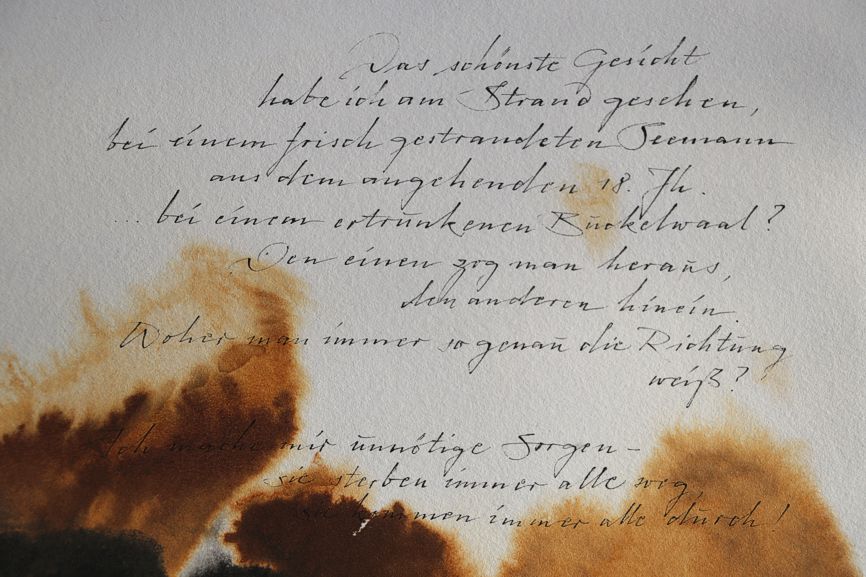 Das schönste Gesicht
habe ich am Strand gesehen,
bei einem frisch gestrandeten Seemann
aus dem angehenden 18. Jh.
... bei einem ertrunkenen Buckelwaal?
Den einen zog man heraus,
den anderen hinein.
Woher man immer so genau die Richtung
weiß?
Ich mache mir unnötige Sorgen –
sie sterben immer alle weg,
sie kommen immer alle durch!